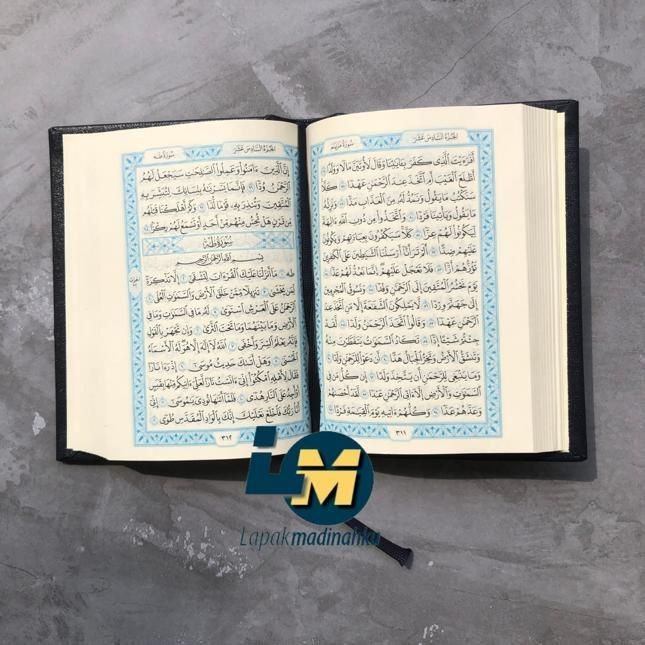 سُورَةُ مَرْيَمَ
الجُزْءُ السَّادِسَ عَشَرَ
أَفَرَءَيْتَ ٱلَّذِى كَفَرَ بِـَٔايَٰتِنَا وَقَالَ لَأُوتَيَنَّ مَالًا وَوَلَدًا ٧٧
أَطَّلَعَ ٱلْغَيْبَ أَمِ ٱتَّخَذَ عِندَ ٱلرَّحْمَٰنِ عَهْدًا ٧٨ كَلَّا
سَنَكْتُبُ مَا يَقُولُ وَنَمُدُّ لَهُۥ مِنَ ٱلْعَذَابِ مَدًّا ٧٩ وَنَرِثُهُۥ
مَا يَقُولُ وَيَأْتِينَا فَرْدًا ٨٠ وَٱتَّخَذُوا۟ مِن دُونِ ٱللَّهِ ءَالِهَةً
لِّيَكُونُوا۟ لَهُمْ عِزًّا ٨١ كَلَّا سَيَكْفُرُونَ بِعِبَادَتِهِمْ وَيَكُونُونَ
عَلَيْهِمْ ضِدًّا ٨٢ أَلَمْ تَرَ أَنَّآ أَرْسَلْنَا ٱلشَّيَٰطِينَ عَلَى ٱلْكَٰفِرِينَ
تَؤُزُّهُمْ أَزًّا ٨٣ فَلَا تَعْجَلْ عَلَيْهِمْ إِنَّمَا نَعُدُّ لَهُمْ عَدًّا ٨٤
يَوْمَ نَحْشُرُ ٱلْمُتَّقِينَ إِلَى ٱلرَّحْمَٰنِ وَفْدًا ٨٥ وَنَسُوقُ ٱلْمُجْرِمِينَ
إِلَىٰ جَهَنَّمَ وِرْدًا ٨٦ لَّا يَمْلِكُونَ ٱلشَّفَٰعَةَ إِلَّا مَنِ ٱتَّخَذَ عِندَ
ٱلرَّحْمَٰنِ عَهْدًا ٨٧ وَقَالُوا۟ ٱتَّخَذَ ٱلرَّحْمَٰنُ وَلَدًا ٨٨ لَّقَدْ
جِئْتُمْ شَيْـًٔا إِدًّا ٨٩ تَكَادُ ٱلسَّمَٰوَٰتُ يَتَفَطَّرْنَ مِنْهُ
وَتَنشَقُّ ٱلْأَرْضُ وَتَخِرُّ ٱلْجِبَالُ هَدًّا ٩٠ أَن دَعَوْا۟ لِلرَّحْمَٰنِ وَلَدًا ٩١
وَمَا يَنۢبَغِى لِلرَّحْمَٰنِ أَن يَتَّخِذَ وَلَدًا ٩٢ إِن كُلُّ مَن فِى
ٱلسَّمَٰوَٰتِ وَٱلْأَرْضِ إِلَّآ ءَاتِى ٱلرَّحْمَٰنِ عَبْدًا ٩٣ لَّقَدْ أَحْصَىٰهُمْ
وَعَدَّهُمْ عَدًّا ٩٤ وَكُلُّهُمْ ءَاتِيهِ يَوْمَ ٱلْقِيَٰمَةِ فَرْدًا ٩٥
٣١١
الجُزْءُ السَّادِسَ عَشَرَ
سُورَةُ طه
إِنَّ ٱلَّذِينَ ءَامَنُوا۟ وَعَمِلُوا۟ ٱلصَّٰلِحَٰتِ سَيَجْعَلُ لَهُمُ
ٱلرَّحْمَٰنُ وُدًّا ٩٦ فَإِنَّمَا يَسَّرْنَٰهُ بِلِسَانِكَ لِتُبَشِّرَ بِهِ
ٱلْمُتَّقِينَ وَتُنذِرَ بِهِۦ قَوْمًا لُّدًّا ٩٧ وَكَمْ أَهْلَكْنَا قَبْلَهُم
مِّن قَرْنٍ هَلْ تُحِسُّ مِنْهُم مِّنْ أَحَدٍ أَوْ تَسْمَعُ لَهُمْ رِكْزًۢا ٩٨
سُورَةُ طه
بِسْمِ ٱللَّهِ ٱلرَّحْمَٰنِ ٱلرَّحِيمِ
طه ١ مَآ أَنزَلْنَا عَلَيْكَ ٱلْقُرْءَانَ لِتَشْقَىٰٓ ٢ إِلَّا تَذْكِرَةً
لِّمَن يَخْشَىٰ ٣ تَنزِيلًا مِّمَّنْ خَلَقَ ٱلْأَرْضَ وَٱلسَّمَٰوَٰتِ ٱلْعُلَى ٤
ٱلرَّحْمَٰنُ عَلَى ٱلْعَرْشِ ٱسْتَوَىٰ ٥ لَهُۥ مَا فِى ٱلسَّمَٰوَٰتِ وَمَا فِى
ٱلْأَرْضِ وَمَا بَيْنَهُمَا وَمَا تَحْتَ ٱلثَّرَىٰ ٦ وَإِن تَجْهَرْ بِٱلْقَوْلِ
فَإِنَّهُۥ يَعْلَمُ ٱلسِّرَّ وَأَخْفَى ٧ ٱللَّهُ لَآ إِلَٰهَ إِلَّا هُوَ لَهُ ٱلْأَسْمَآءُ
ٱلْحُسْنَىٰ ٨ وَهَلْ أَتَىٰكَ حَدِيثُ مُوسَىٰٓ ٩ إِذْ رَءَا نَارًا
فَقَالَ لِأَهْلِهِ ٱمْكُثُوٓا۟ إِنِّىٓ ءَانَسْتُ نَارًا لَّعَلِّىٓ ءَاتِيكُم مِّنْهَا بِقَبَسٍ
أَوْ أَجِدُ عَلَى ٱلنَّارِ هُدًى ١٠ فَلَمَّآ أَتَىٰهَا نُودِىَ يَٰمُوسَىٰٓ ١١ إِنِّىٓ
أَنَا۠ رَبُّكَ فَٱخْلَعْ نَعْلَيْكَ إِنَّكَ بِٱلْوَادِ ٱلْمُقَدَّسِ طُوًى ١٢
٣١٢
LM
Lapakmadinahku